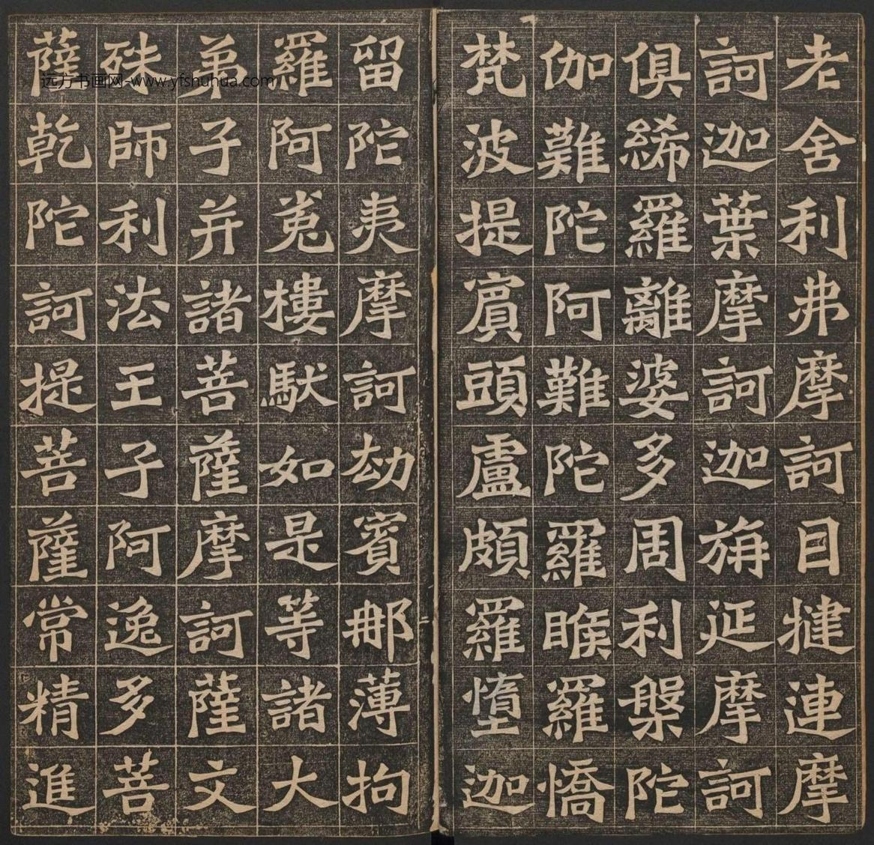 老舍利弗摩訶目揵連摩
訶迦葉摩訶迦旃延摩訶
俱絺羅離婆多周利槃陀
伽難陀阿難陀羅睺羅憍
梵波提賔頭盧頗羅墮迦
留陀夷摩訶劫賓那薄拘
羅阿㝹樓馱如是等諸大
弟子并諸菩薩摩訶薩文
殊師利法王子阿逸多菩
薩乾陀訶提菩薩常精進
远方书画网-www.yfshuhua.com